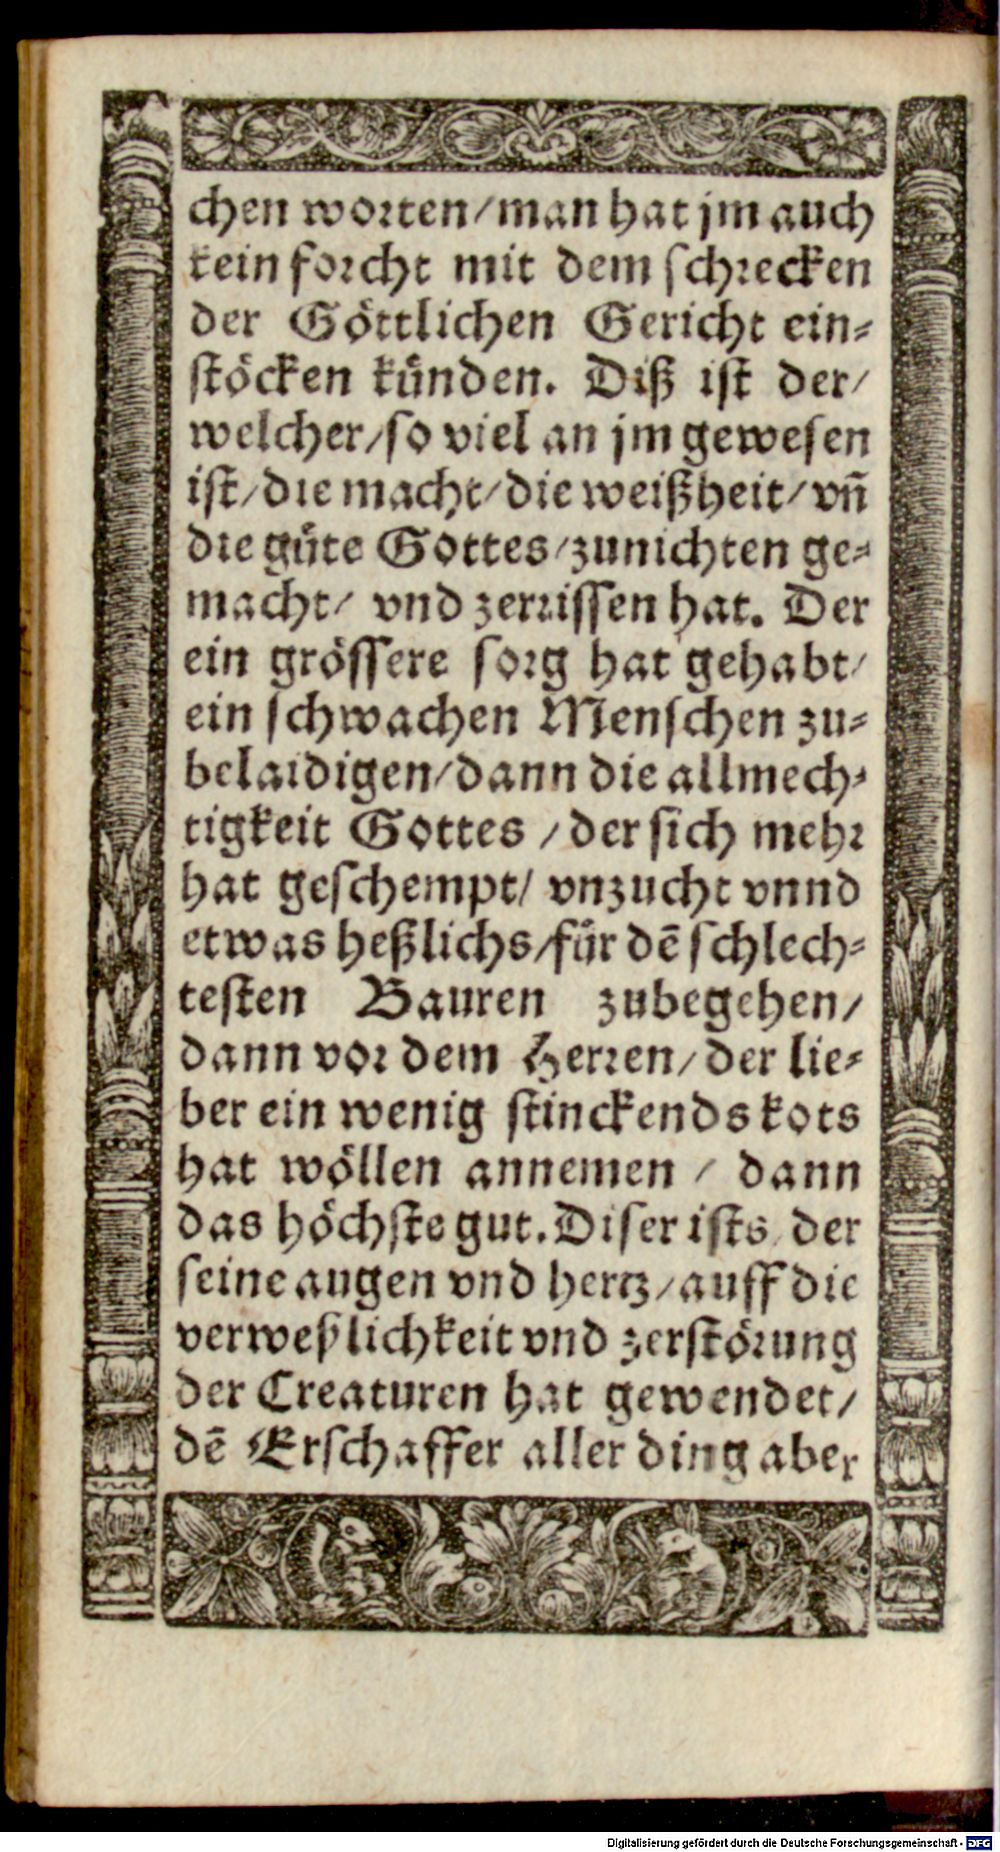 chen worten/man hat jm auch
kein forcht mit dem schrecken
der Göttlichen Gericht ein⸗
stöcken künden. Diß ist der/
welcher/so viel an jm gewesen
ist/die macht/die weißheit/vñ
die güte Gottes/zunichten ge⸗
macht/ vnd zerrissen hat. Der
ein grössere sorg hat gehabt/
ein schwachen Menschen zu⸗
belaidigen/dann die allmech⸗
tigkeit Gottes /der sich mehr
hat geschempt/ vnzucht vnnd
etwas heßlichs/für dẽ schlech⸗
testen Bauren zubegehen/
dann vor dem Herren/der lie⸗
ber ein wenig stinckends kots
hat wöllen annemen / dann
das höchste gut. Diser ists/ der
seine augen vnd hertz/auff die
verweßlichkeit vnd zerstörung
der Creaturen hat gewendet/
dẽ Erschaffer aller ding aber
Digitalisierung gefördert durch die Deutsche Forschungsgemeinschaft - DFG